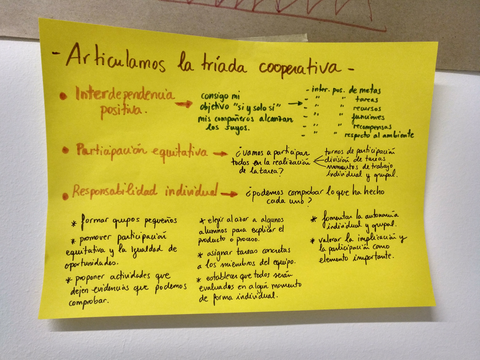 - Articulamos la tríada cooperativa -
• Interdependencia positiva. → consigo mi objetivo "si y solo si" mis compañeros alcanzan los suyos. →
- inter. pos. de metas
- " " tareas
- " " recursos
- " " funciones
- " " recompensas
- " " respecto al ambiente
• Participación equitativa → ¿vamos a participar
todos en la realización
de la tarea?
turnos de participación
división de tareas
momentos de trabajo
individual y grupal.
• Responsabilidad individual → ¿podemos comprobar lo que ha hecho
cada uno?
* formar grupos pequeños
* promover participación
equitativa y la igualdad de
oportunidades.
* proponer actividades que
dejen evidencias que podemos
comprobar.
* elegir al azar a algunos
alumnos para explicar el
producto o proceso.
* asignar tareas concretas
a los miembros del equipo.
* establecer que todos serán
evaluados en algún momento
de forma individual.
* fomentar la autonomía
individual y grupal.
* valorar la implicación y
la participación como
elemento importante.